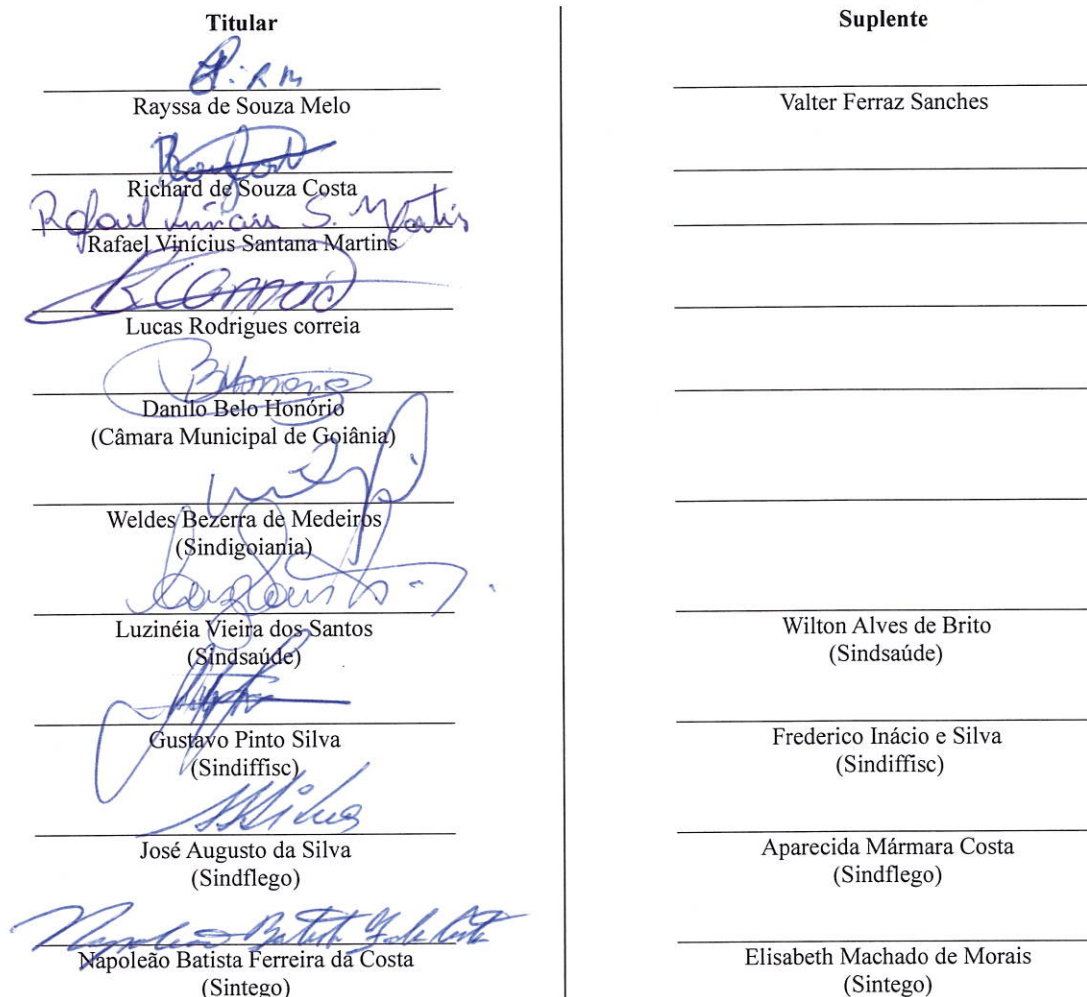 Titular
Rayssa de Souza Melo
Richard de Souza Costa
Rafael Vinícius S. Martins
Rafael Vinícius Santana Martins
Lucas Rodrigues correia
Danilo Belo Honório
(Câmara Municipal de Goiânia)
Weldes Bezerra de Medeiros
(Sindigoiania)
Luzinéia Vieira dos Santos
(Sindsaúde)
Gustavo Pinto Silva
(Sindiffisc)
José Augusto da Silva
(Sindflego)
Napoleão Batista F. da Costa
Napoleão Batista Ferreira da Costa
(Sintego)
Suplente
Valter Ferraz Sanches
Wilton Alves de Brito
(Sindsaúde)
Frederico Inácio e Silva
(Sindiffisc)
Aparecida Mármara Costa
(Sindflego)
Elisabeth Machado de Morais
(Sintego)